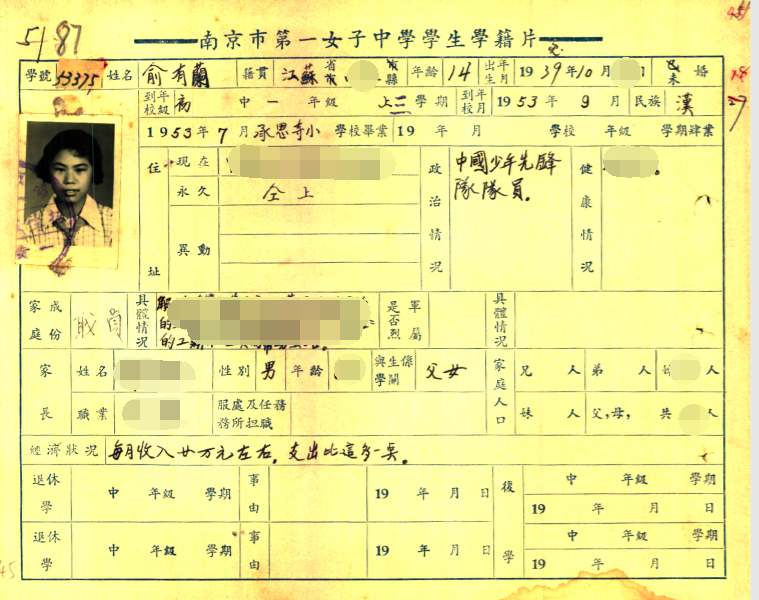 5187
南京市第一女子中學學生學籍片
學號 53375 姓名 俞有蘭 籍貫 江蘇省市 市縣 年齡 14 出生年月 1939年10 已未婚
到校年級 初中一年級 上 學期 到校年月 1953年9月 民族 漢
1953年7月 承恩寺小 學校畢業 19 年 月 學校 年級 學期肄業
住址 現在
永久 仝上
異動
政治情況 中國少年先鋒隊隊員。
健康情況
家庭成份 職員 具體情況 是否軍烈屬 具體情況
家長 姓名 性別 男 年齡 與學生關係 父女
職業 服務處所及任務担職
家庭人口 兄 人 弟 人 人
妹 人 父,母, 共 人
經濟狀况 每月收入廿万元左右,支出比這多一点。
退休學 中 年級 學期 事由 19 年 月 日 復學 中 年級 學期 19 年 月 日
退休學 中 年級 學期 事由 19 年 月 日 中 年級 學期 19 年 月 日